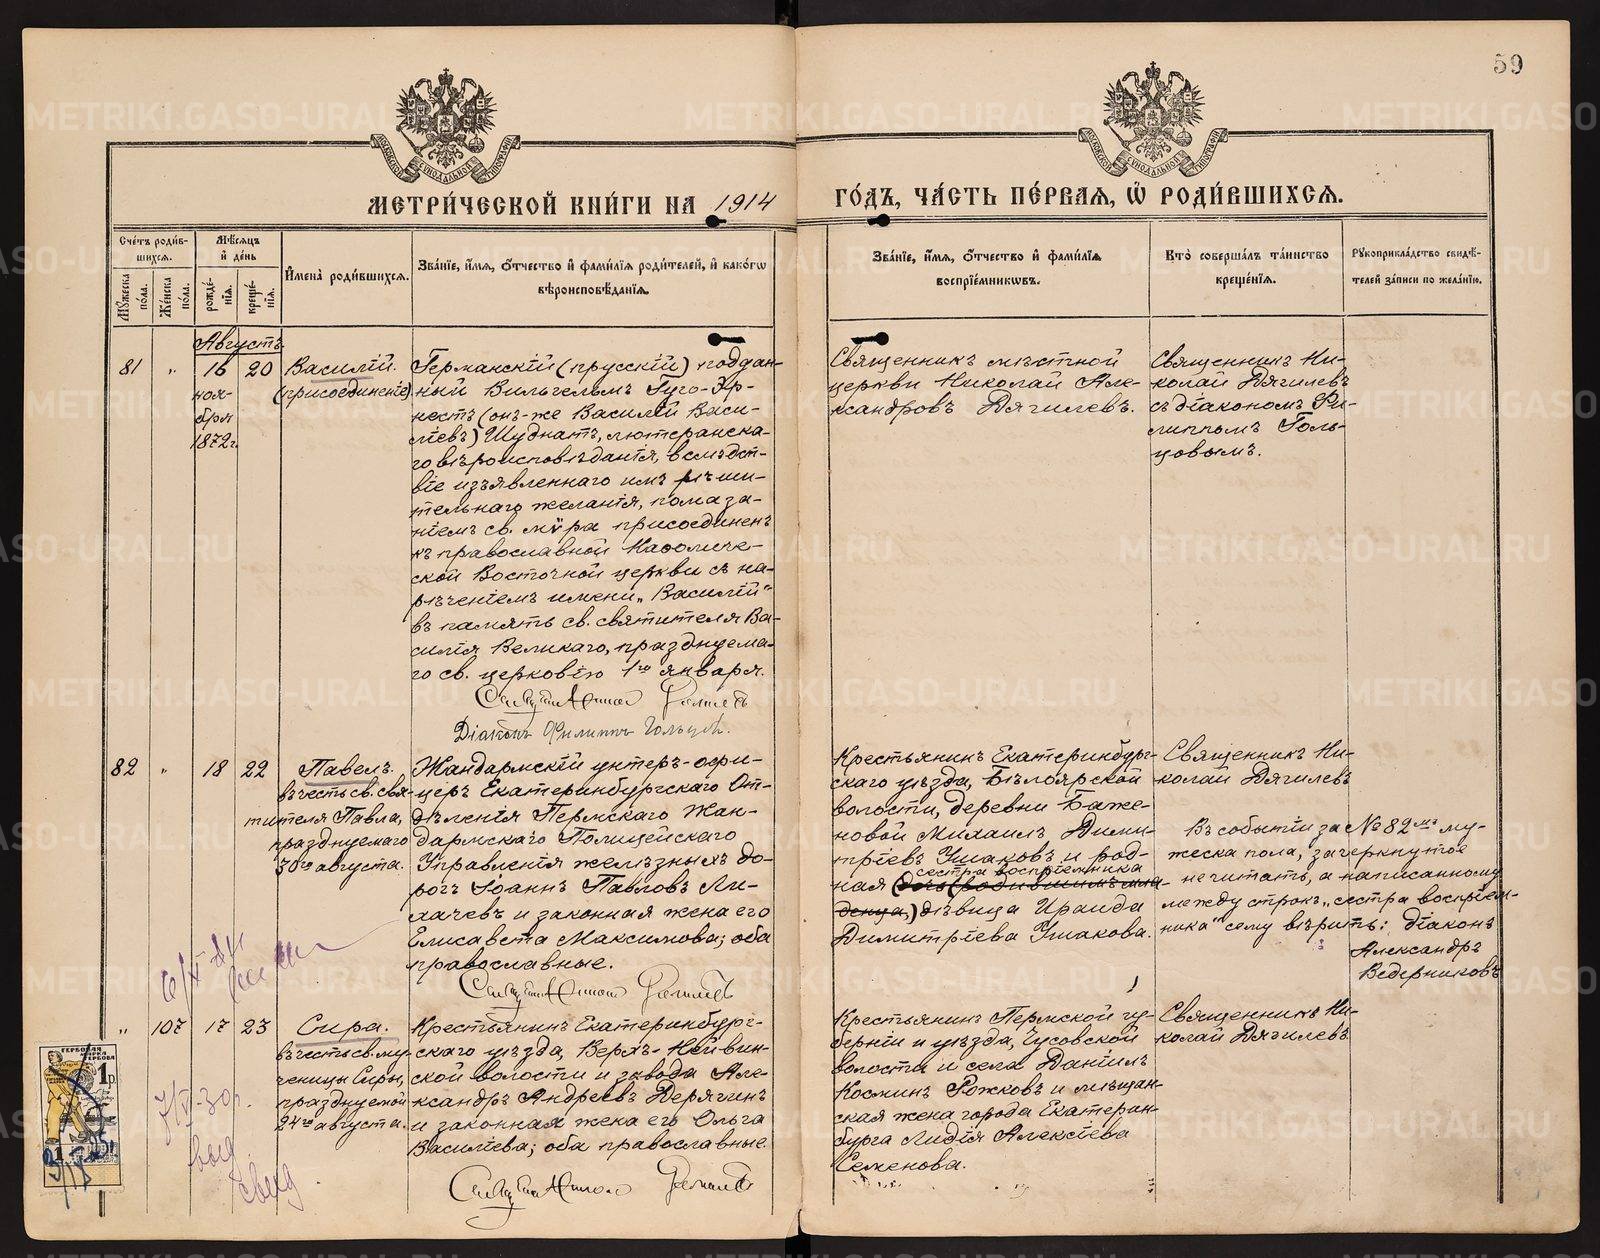 59
МЕТРИ́ЧЕСКОЙ КНИ́ГИ НА 1914 ГО́ДЪ, ЧА́СТЬ ПЕ́РВАЯ, Ѡ҆ РОДИ́ВШИХСЯ.
Сче́тъ роди́в-
шихся.
Мꙋ́жеска по́ла.
Же́нска по́ла.
Мѣ́сяцъ и҆ де́нь
рожде́-
нїя.
креще́-
нїя.
И҆мена̀ роди́вшихся.
Зва́нїе, и҆́мя, ѻ҆́тчество и҆ фами́лїя роди́телей, и҆ како́гѡ
вѣроисповѣ́данїя.
Зва́нїе, и҆́мя, ѻ҆́тчество и҆ фами́лїя
воспрїе́мникѡвъ.
Кто̀ соверша́лъ та́инство
креще́нїя.
Рꙋкоприкла́дство свидѣ́-
телей за́писи по жела́нїю.
Августъ
81 " 16 20
ноя-
бря
1872г.
Василій.
(присоединеніе)
Германскій (прусскій) поддан-
ный Вильгельмъ Гуго-Эр-
нестъ (онъ-же Василій Васи-
ліевъ) Шуднатъ, лютеранска-
го вѣроисповѣданія, вслѣдст-
віе изъявленнаго имъ рѣши-
тельнаго желанія, помаза-
ніемъ св. мѵра присоединенъ
къ православной Каѳоличе-
ской Восточной церкви съ на-
рѣченіемъ имени „Василій"
въ память св. святителя Ва-
силія Великаго, празднуема-
го св. церковію 1го января.
Священникъ Николай Дягилевъ
Діаконъ Филиппъ Гольцовъ.
Священникъ мѣстной
церкви Николай Але-
ксандровъ Дягилевъ.
Священникъ Ни-
колай Дягилевъ
съ діакономъ Фи-
липпомъ Голь-
цовымъ.
82 " 18 22
Павелъ.
въ честь св. свя-
тителя Павла,
празднуемаго
30го августа.
Жандармскій унтеръ-офи-
церъ Екатеринбургскаго От-
дѣленія Пермскаго Жан-
дармскаго Полицейскаго
Управленія желѣзныхъ до-
рогъ Іоаннъ Павловъ Ли-
хачевъ и законная жена его
Елисавета Максимова; оба
православные.
Священникъ Николай Дягилевъ
Крестьянинъ Екатеринбург-
скаго уѣзда, Бѣлоярской
волости, деревни Баже-
новой Михаилъ Дими-
тріевъ Ушаковъ и род-
сестра воспріемника
ная (дочь (родившимъ мла-
денца,) дѣвица Ираида
Димитріева Ушакова.
Священникъ Ни-
колай Дягилевъ
Въ событіи за № 82мъ му-
жеска пола, зачеркнутое
не читать, а написанному
между строкъ „сестра воспріем-
ника" сему вѣрить: діаконъ
Александръ
Ведерниковъ
" 107 17 23
Сира.
въ честь св. му-
ченицы Сиры,
празднуемой
24го августа.
Крестьянинъ Екатеринбург-
скаго уѣзда, Верхъ-Нейвин-
ской волости и завода Але-
ксандръ Андреевъ Дерягинъ
и законная жена его Ольга
Василіева; оба православные.
Священникъ Николай Дягилевъ
Крестьянинъ Пермской гу-
берніи и уѣзда, Чусовской
волости и села Даніилъ
Косминъ Рожковъ и мѣщан-
ская жена города Екатерин-
бурга Лидія Алексіева
Семенова.
Священникъ Ни-
колай Дягилевъ
7/V-30г.
выд.
свид.
ГЕРБОВАЯ
МАРКА
1р.
METRIKI.GASO-URAL.RU